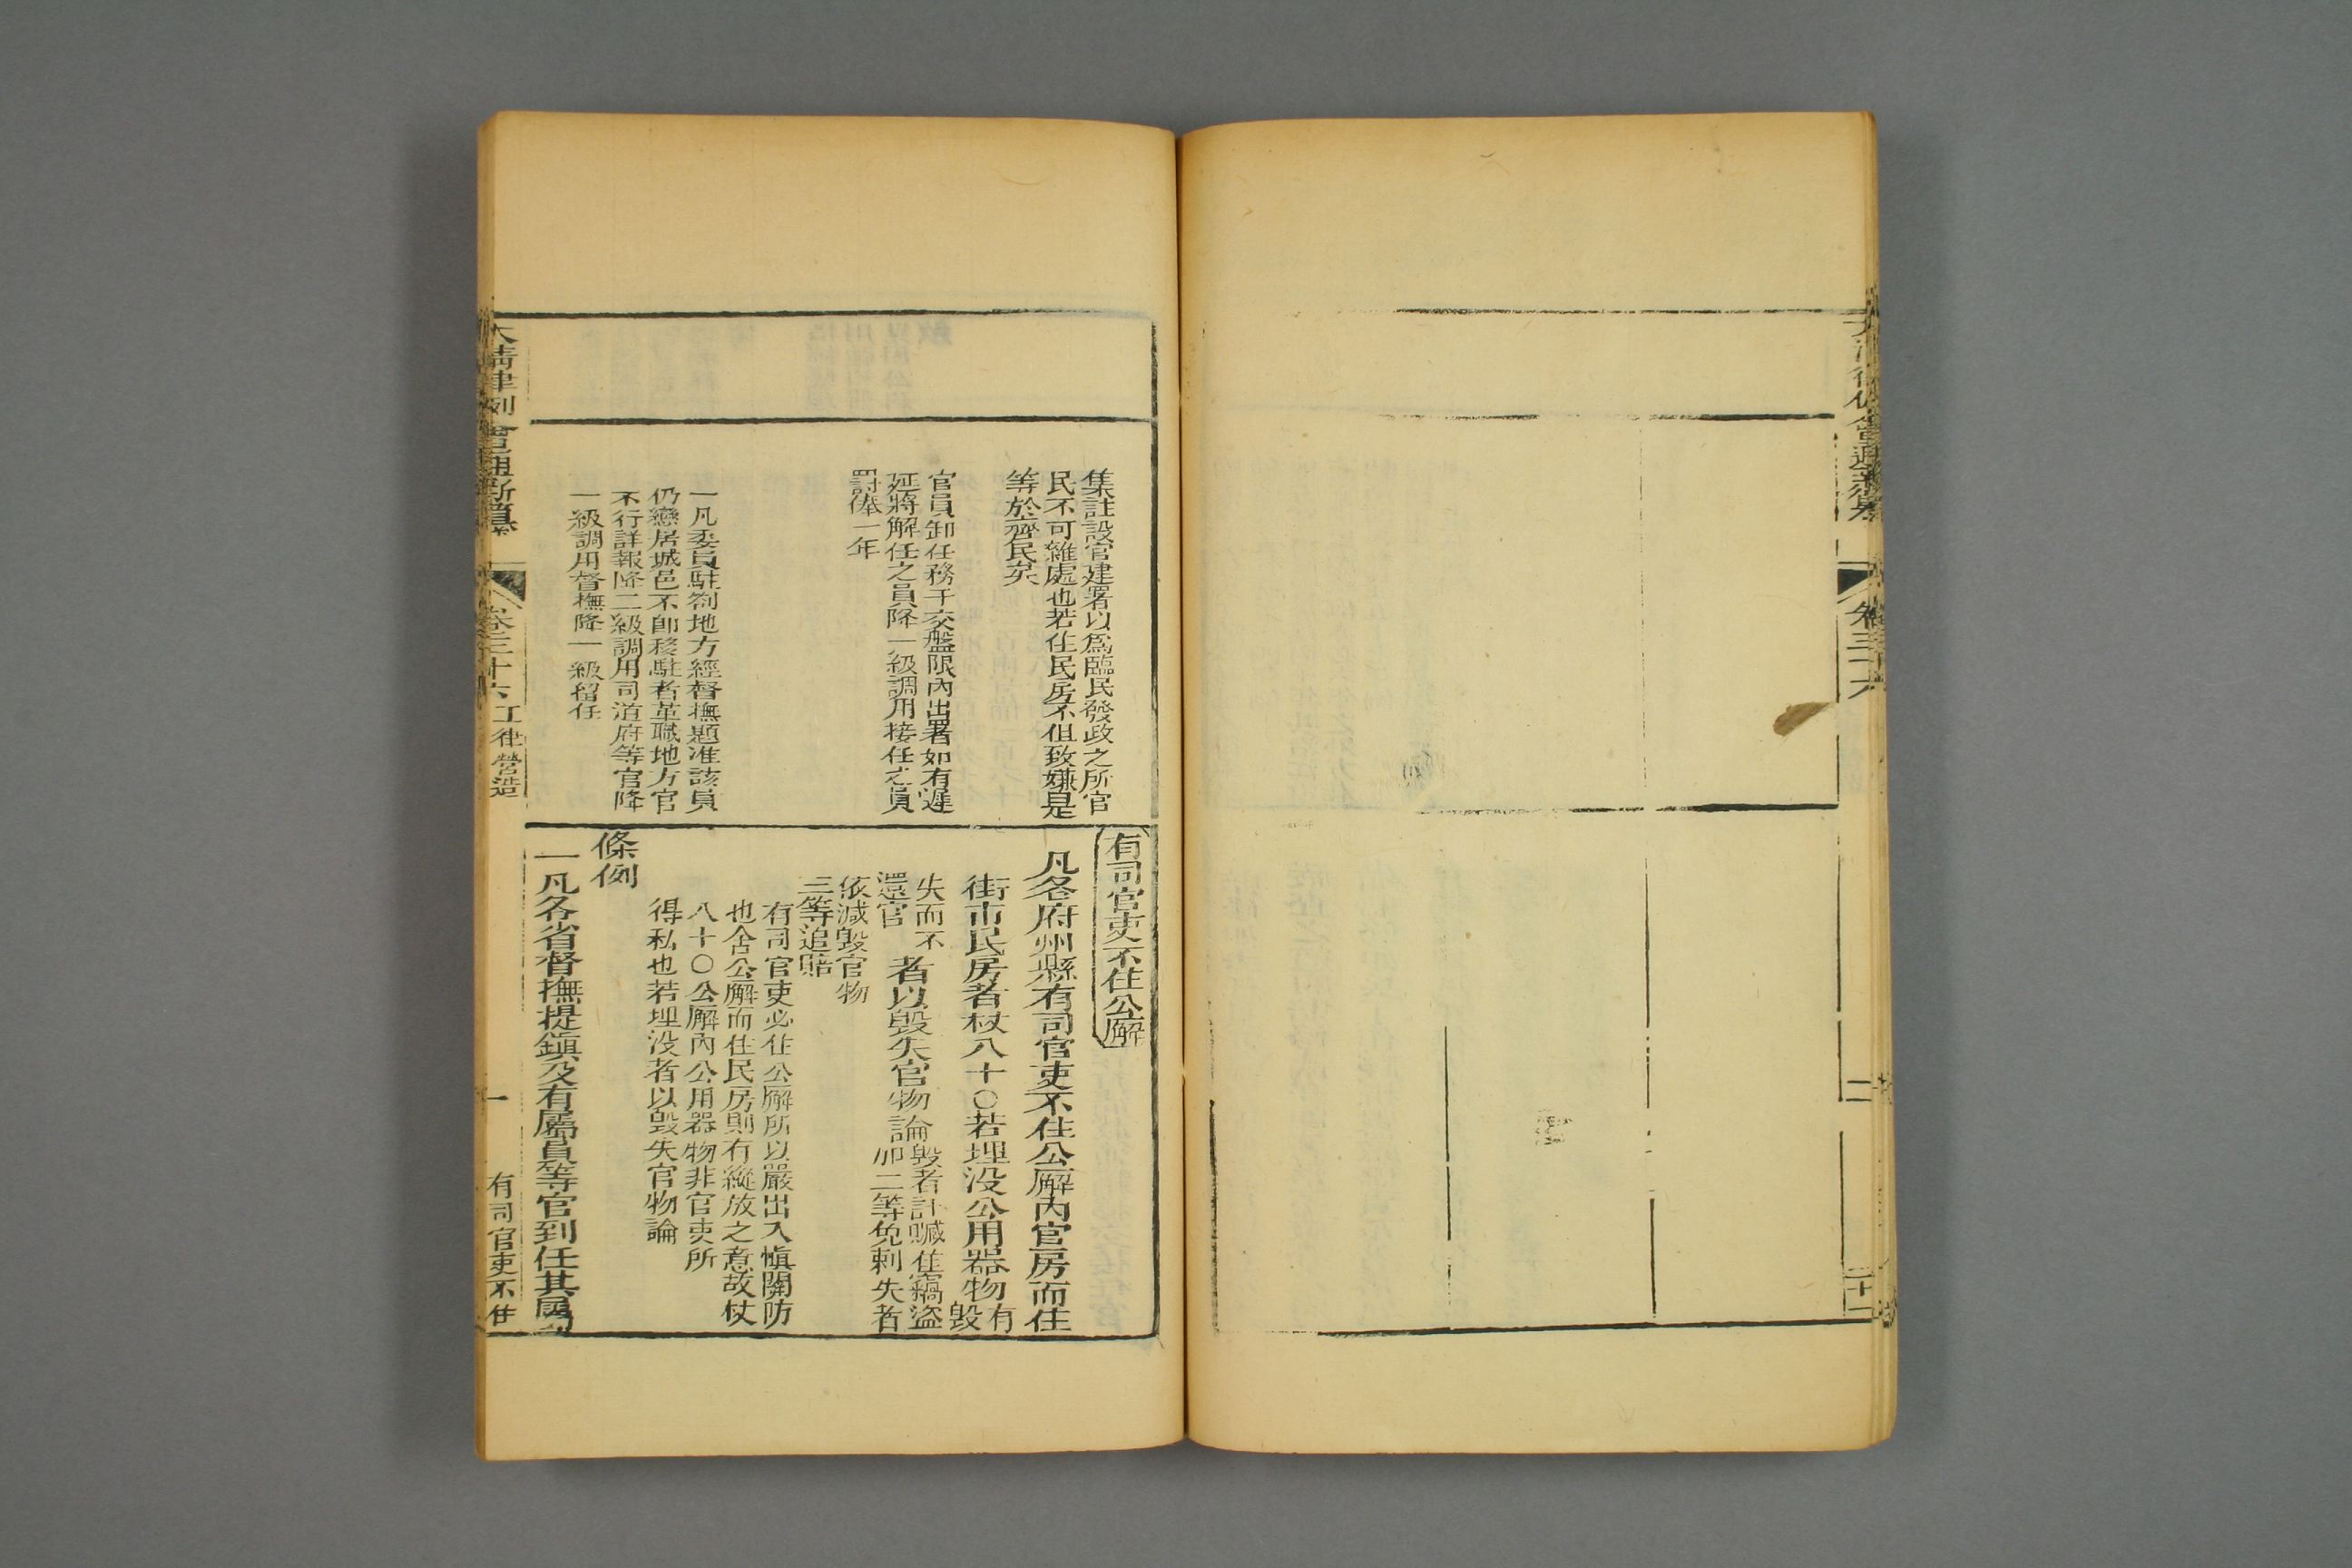 卷三十六
二
二十一
集註設官建署以爲臨民發政之所官
民不可雜處也若住民房不但致嫌是
等於齊民矣
官員卸任務于交盤限內出署如有遲
延將解任之員降一級調用接任之員
罰俸一年
一凡委員駐劄地方經督撫題准該員
仍戀居城邑不卽移駐者革職地方官
不行詳報降二級調用司道府等官降
一級調用督撫降一級留任
有司官吏不住公廨
凡各府州縣有司官吏不住公廨內官房而住
街市民房者杖八十〇若埋沒公用器物有毀
失而不還官者以毀失官物論毀者計贓准竊盜加二等免刺失者
依減毀官物
三等追賠
有司官吏必住公廨所以嚴出入愼關防
也舍公廨而住民房則有縱放之意故杖
八十〇公廨內公用器物非官吏所
得私也若埋沒者以毀失官物論
條例
一凡各省督撫提鎭及有屬員等官到任其屬
大清律例會通新纂
卷三十六工律營造
一
有司官吏不住